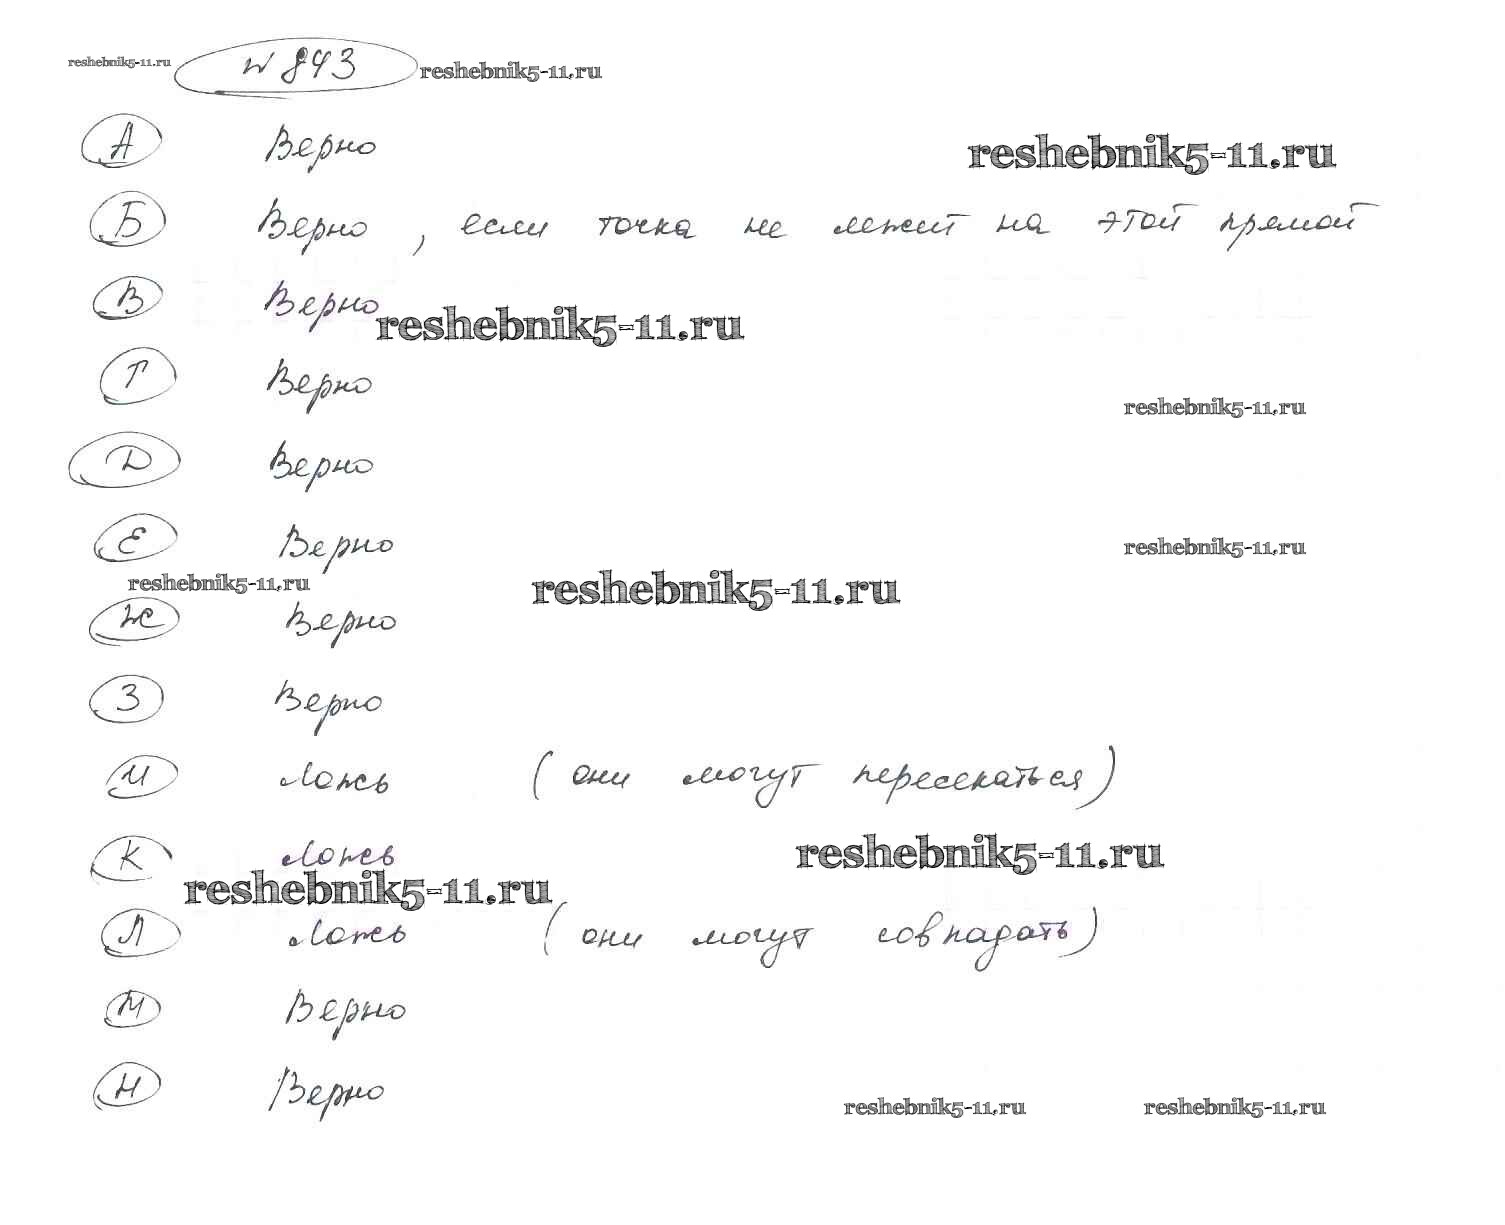 reshebnik5-11.ru № 843 reshebnik5-11.ru
А Верно
reshebnik5-11.ru
Б Верно, если точка не лежит на этой прямой
В Верно
reshebnik5-11.ru
Г Верно
reshebnik5-11.ru
Д Верно
Е Верно
reshebnik5-11.ru
reshebnik5-11.ru reshebnik5-11.ru
Ж Верно
З Верно
И Ложь (они могут пересекаться)
К Ложь
reshebnik5-11.ru
reshebnik5-11.ru
Л Ложь (они могут совпадать)
М Верно
Н Верно
reshebnik5-11.ru reshebnik5-11.ru